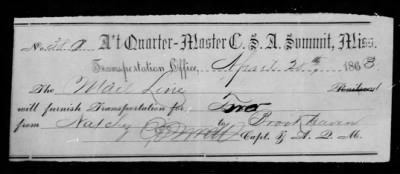 No. A't Quarter-Master C. S. A. Summit, Miss.
Transportation Office, April 20th, 1863
The Mail Line Railroad
will furnish Transportation for Two
from Natchez to Brookhaven
Capt. & A. Q. M.